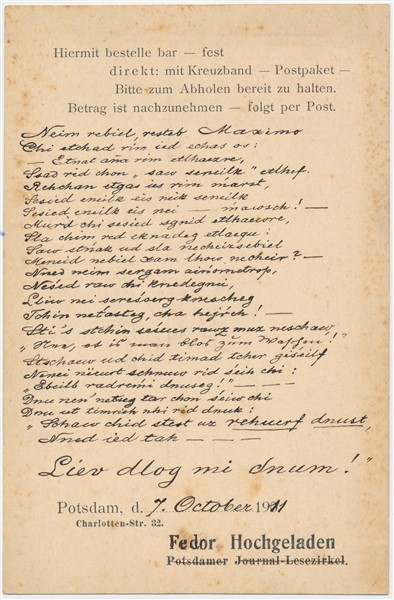 Hiermit bestelle bar — fest
direkt: mit Kreuzband — Postpaket —
Bitte zum Abholen bereit zu halten.
Betrag ist nachzunehmen — folgt per Post.
Neim rebiel, resteb Maximo
Chi etchad rim ied echas os:
— Etnat aña rim etlhaezre,
Ssad rid chon „saw seneilk“ etlhef.
Rehchan etgas ies rim
Seseid eneilk eis neik seneilk
Seseid eneilk eis nei — — !—
Murd chi seseid sgnid etlhaewre,
Sla chim red etlaequ:
Saw stñak ud sla necheizsebiel
Meneid nebiel xam lhow necheir? —
Nned neim sergam aiñometrop,
Nesied raw chi knedegnu,
Liew nei knescheg
Tchin netasteg, cha !—
Sti's stchin seseues rawz muz nschaw,
„Nur, es is' man blos zum Waschen!“
Stschaew ud chid timad tcher giseilf
Nenei schnuw rid seih chi:
„Ebeilb radremi dnuseg!“ — — —
Dnu nen' netueg tar chon seiw chi
Dnu ut timrich nhi rid dnuk:
„Schaw chid stest uz rehuerf dnust,
Nned ied tah — — —
Liev dlog mi dnum!“
Potsdam, d. 7. October 1911
Charlotten-Str. 32.
Fedor Hochgeladen
Potsdamer Journal-Lesezirkel.